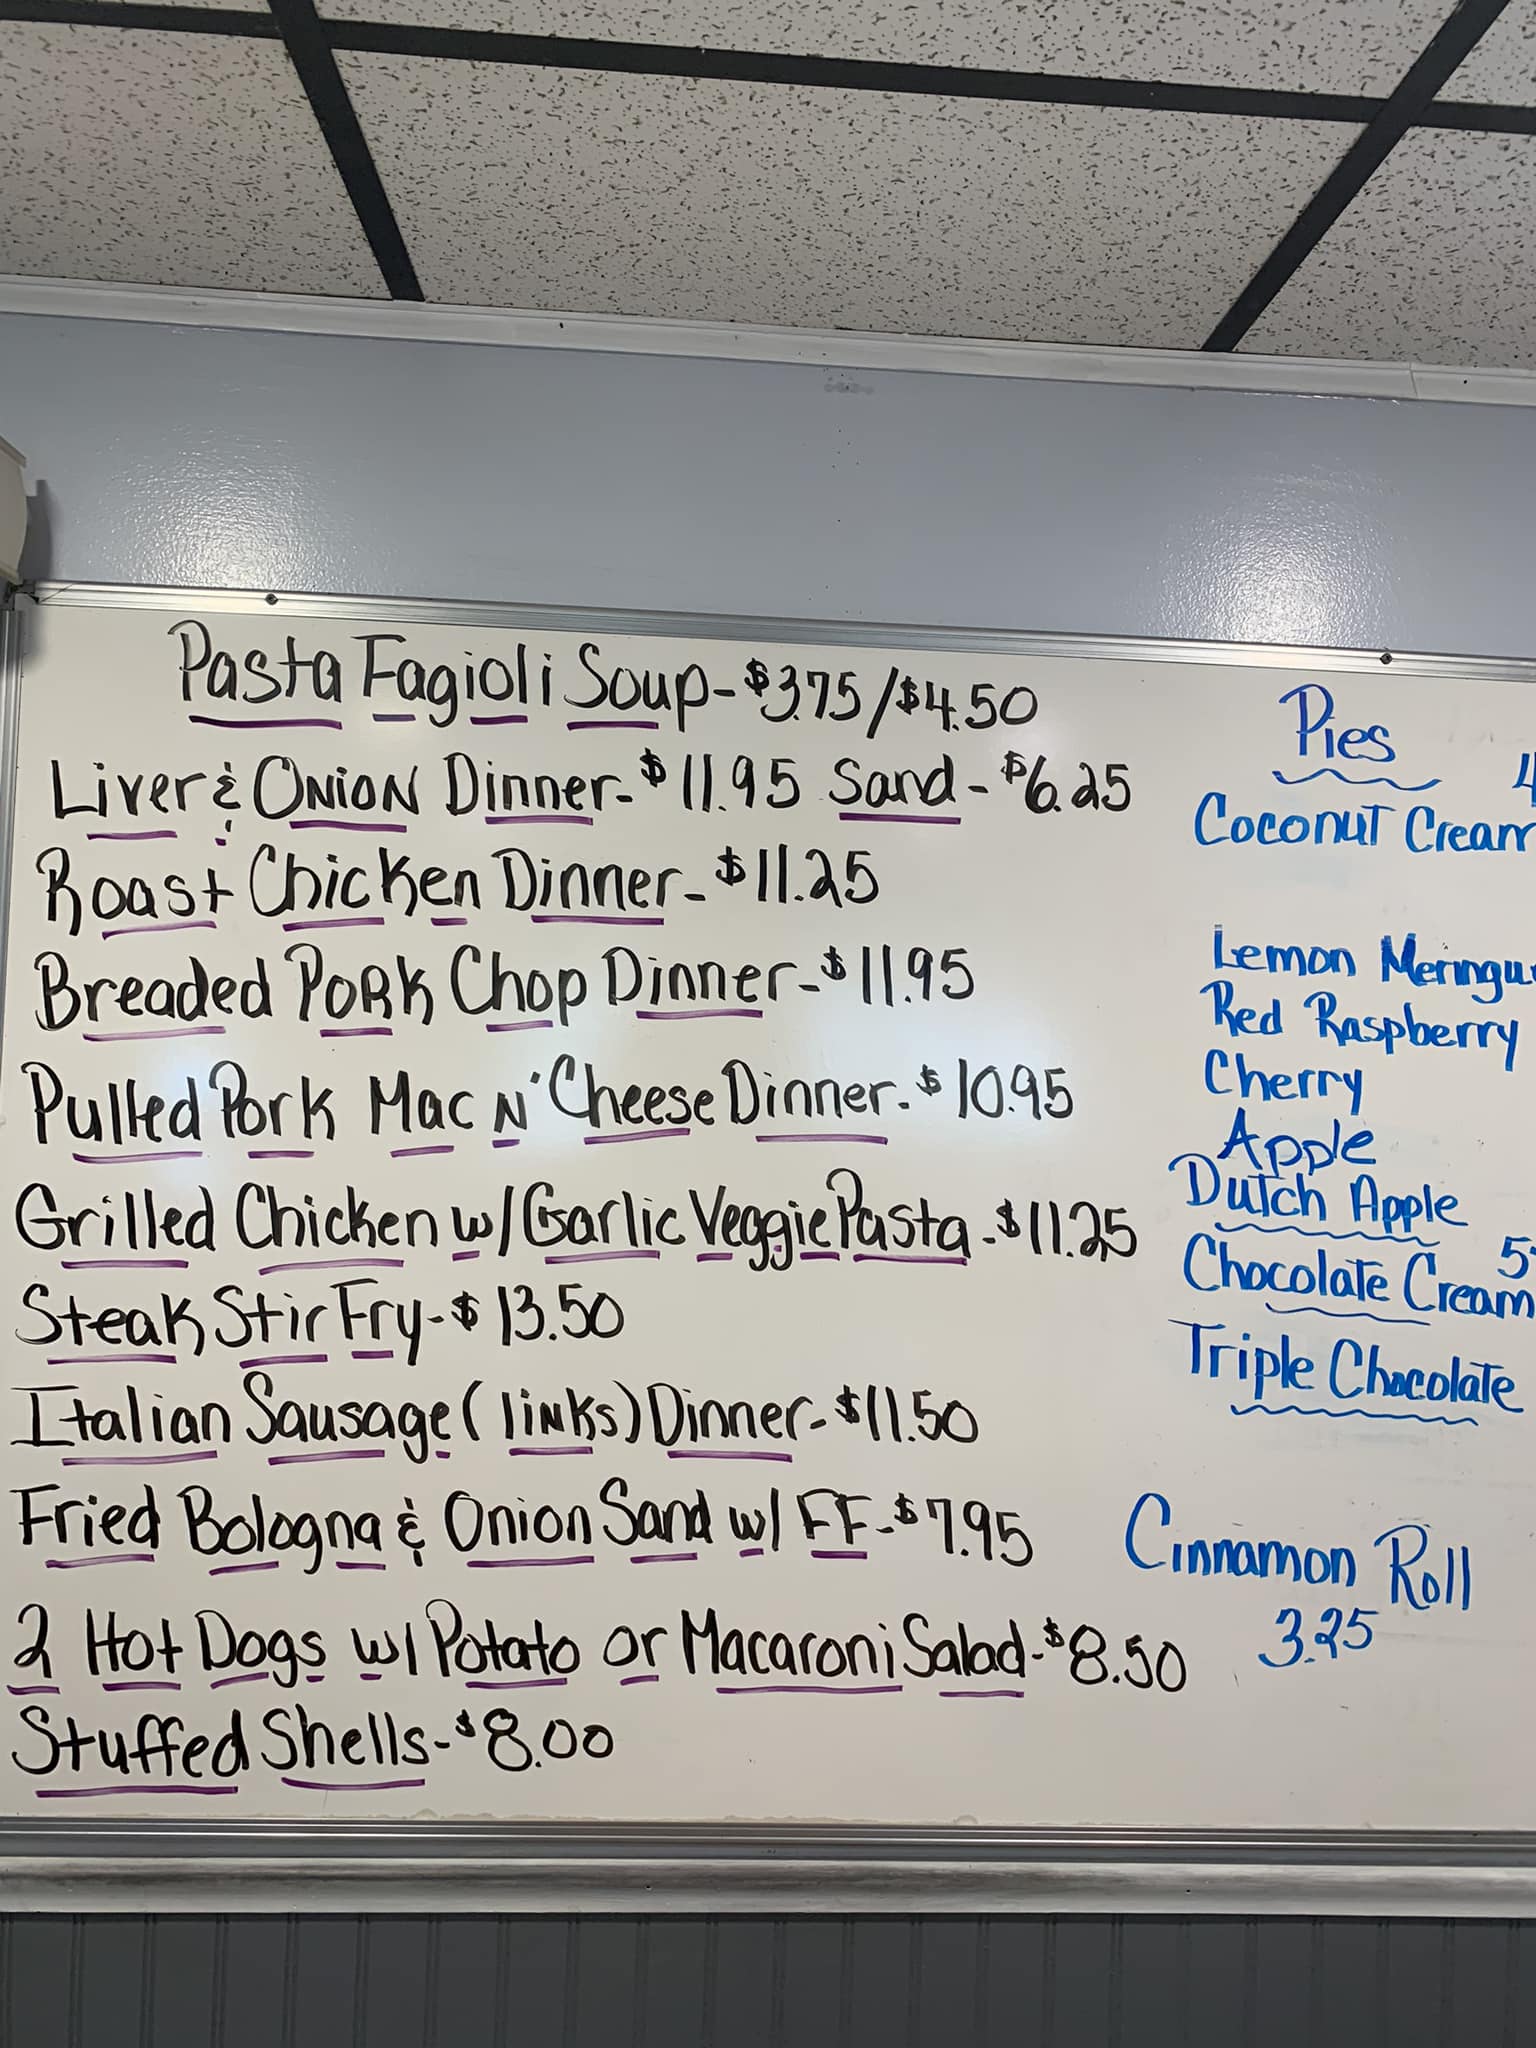 Pasta Fagioli Soup - $3.75 / $4.50
Liver & Onion Dinner - $11.95 Sand - $6.25
Roast Chicken Dinner - $11.25
Breaded Pork Chop Dinner - $11.95
Pulled Pork Mac N' Cheese Dinner - $10.95
Grilled Chicken w/ Garlic Veggie Pasta - $11.25
Steak Stir Fry - $13.50
Italian Sausage (links) Dinner - $11.50
Fried Bologna & Onion Sand w/ FF - $7.95
2 Hot Dogs w/ Potato or Macaroni Salad - $8.50
Stuffed Shells - $8.00
Pies
4
Coconut Cream
Lemon Meringu
Red Raspberry
Cherry
Apple
Dutch Apple
5
Chocolate Cream
Triple Chocolate
Cinnamon Roll
3.25